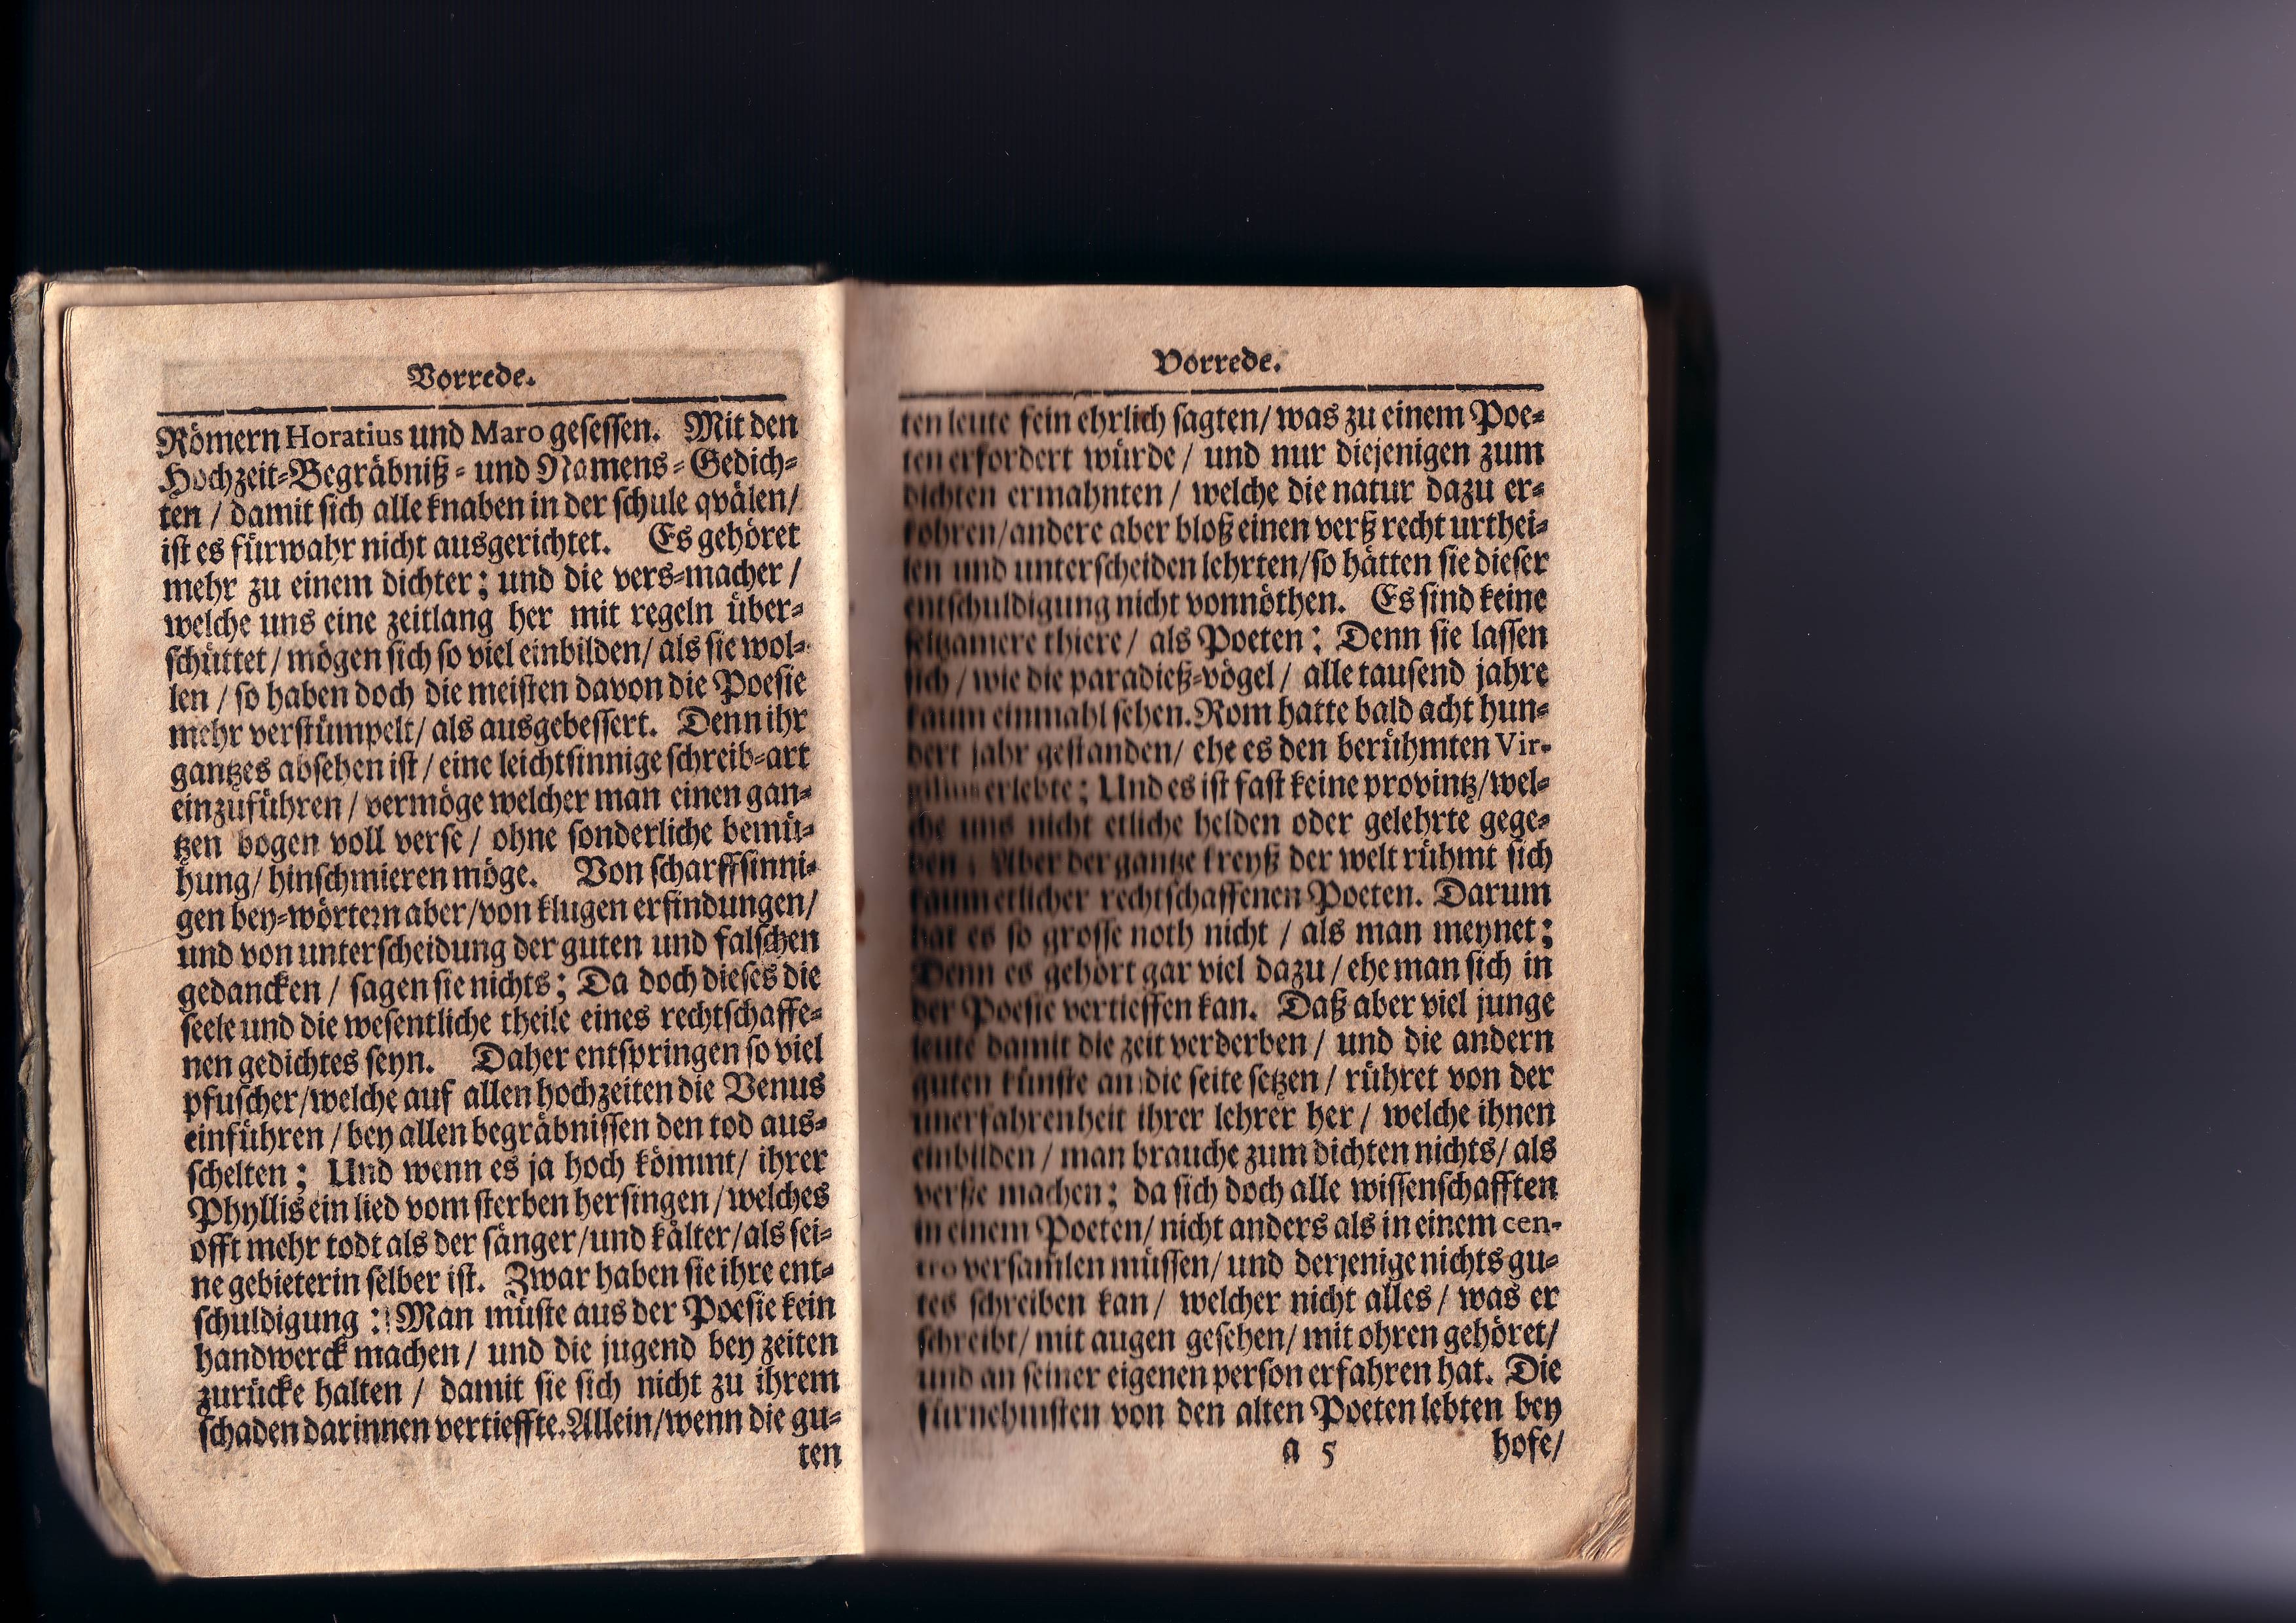 Vorrede.
Römern Horatius und Maro gesessen. Mit den
Hochzeit-Begräbniß- und Namens-Gedich-
ten / damit sich alle knaben in der schule qvälen/
ist es fürwahr nicht ausgerichtet. Es gehöret
mehr zu einem dichter; und die vers-macher /
welche uns eine zeitlang her mit regeln über-
schüttet / mögen sich so viel einbilden/ als sie wol-
len / so haben doch die meisten davon die Poesie
mehr verstümpelt/ als ausgebessert. Denn ihr
gantzes absehen ist / eine leichtsinnige schreib-art
einzuführen / vermöge welcher man einen gan-
tzen bogen voll verse / ohne sonderliche bemü-
hung/ hinschmieren möge. Von scharffsinni-
gen bey-wörtern aber/von klugen erfindungen/
und von unterscheidung der guten und falschen
gedancken / sagen sie nichts; Da doch dieses die
seele und die wesentliche theile eines rechtschaffe-
nen gedichtes seyn. Daher entspringen so viel
pfuscher/welche auf allen hochzeiten die Venus
einführen / bey allen begräbnissen den tod aus-
schelten; Und wenn es ja hoch kömmt/ ihrer
Phyllis ein lied vom sterben hersingen / welches
offt mehr todt als der sänger/und kälter/als sei-
ne gebieterin selber ist. Zwar haben sie ihre ent-
schuldigung: Man müste aus der Poesie kein
handwerck machen / und die jugend bey zeiten
zurücke halten / damit sie sich nicht zu ihrem
schaden darinnen vertieffte. Allein/wenn die gu-
ten
Vorrede.
ten leute fein ehrlich sagten/ was zu einem Poe-
ten erfordert würde / und nur diejenigen zum
dichten ermahnten / welche die natur dazu er-
kohren/andere aber bloß einen verß recht urthei-
len und unterscheiden lehrten/so hätten sie dieser
entschuldigung nicht vonnöthen. Es sind keine
seltzamere thiere / als Poeten: Denn sie lassen
sich / wie die paradieß-vögel / alle tausend jahre
kaum einmahl sehen. Rom hatte bald acht hun-
dert jahr gestanden/ ehe es den berühmten Vir-
gilium erlebte; Und es ist fast keine provintz/wel-
che uns nicht etliche helden oder gelehrte gege-
ben; Aber der gantze kreyß der welt rühmt sich
kaum etlicher rechtschaffenen Poeten. Darum
hat es so grosse noth nicht / als man meynet;
Denn es gehört gar viel dazu / ehe man sich in
der Poesie vertieffen kan. Daß aber viel junge
leute damit die zeit verderben / und die andern
guten künste an die seite setzen / rühret von der
unerfahrenheit ihrer lehrer her / welche ihnen
einbilden / man brauche zum dichten nichts/ als
verße machen; da sich doch alle wissenschafften
in einem Poeten/ nicht anders als in einem cen-
tro versamlen müssen/ und derjenige nichts gu-
tes schreiben kan / welcher nicht alles / was er
schreibt/ mit augen gesehen/ mit ohren gehöret/
und an seiner eigenen person erfahren hat. Die
fürnehmsten von den alten Poeten lebten bey
a 5 hofe/